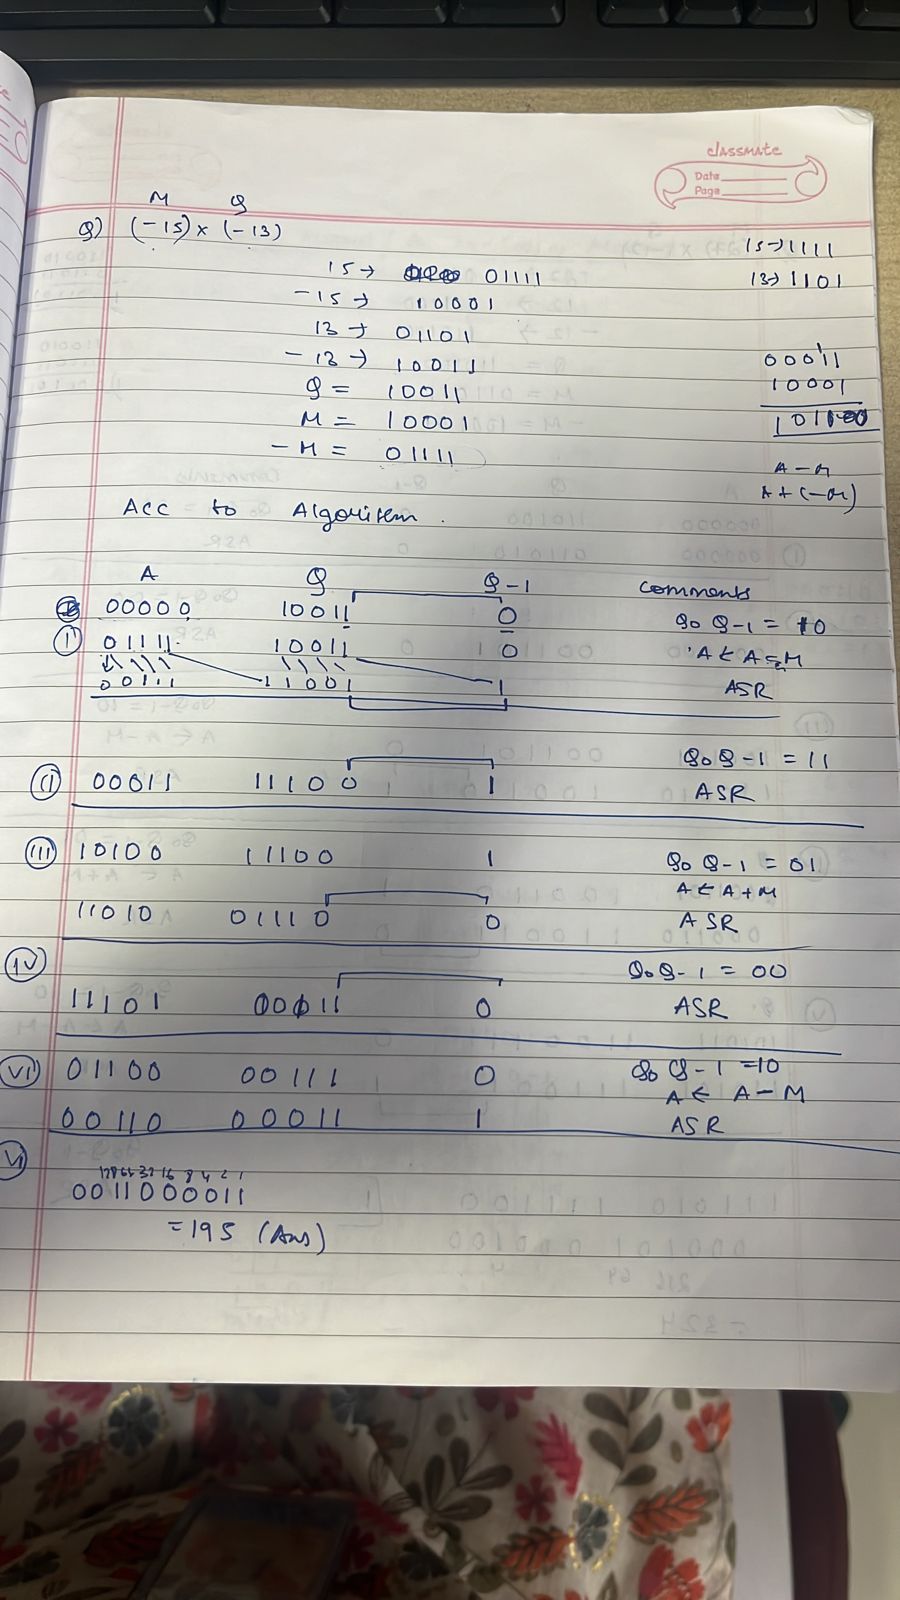 classmate
Date
Page
M Q
Q) (-15) x (-13)
15 → 1111
13 → 1101
15 → 01111
-15 → 10001
13 → 01101
-13 → 10011
Q = 10011
M = 10001
-M = 01111
1
00011
10001
A-M
A+(-M)
Acc to Algoritem.
A Q Q-1 comments
00000 10011 0 Q0 Q-1 = 10
(I) 01111 10011 0 A ← A-M
00111 11001 1 ASR
Q0 Q-1 = 11
(II) 00011 11100 1 ASR
(III) 10100 11100 1 Q0 Q-1 = 01
A ← A+M
11010 01110 0 ASR
(IV) Q0 Q-1 = 00
11101 00111 0 ASR
(VI) 01100 00111 0 Q0 Q-1 = 10
A ← A-M
00110 00011 1 ASR
VI
128 64 32 16 8 4 2 1
0011000011
= 195 (Ans)